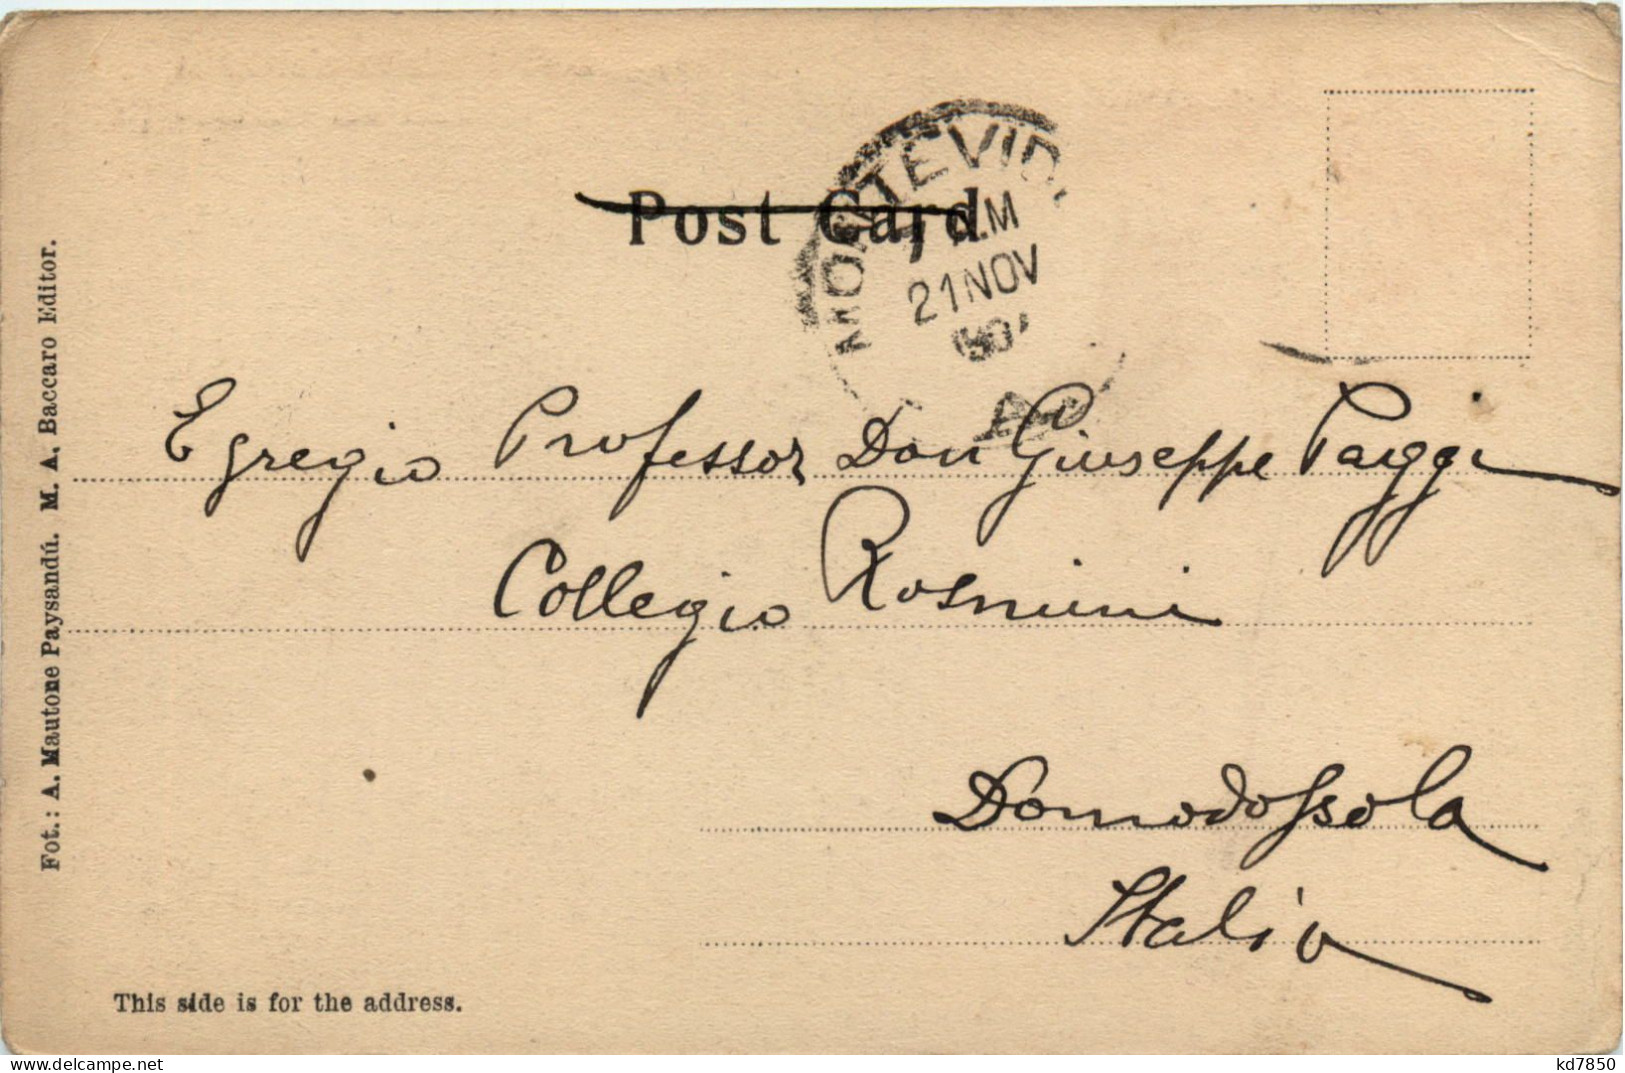 MONTEVID.
Post Card
7 A.M
21 NOV
Egregio Professor Don Giuseppe Paggi
Collegio Rosmini
Domodossola
Italia
This side is for the address.
Fot.: A. Mautone Paysandú. M. A. Baccaro Editor.
delcampe.net
kd7850